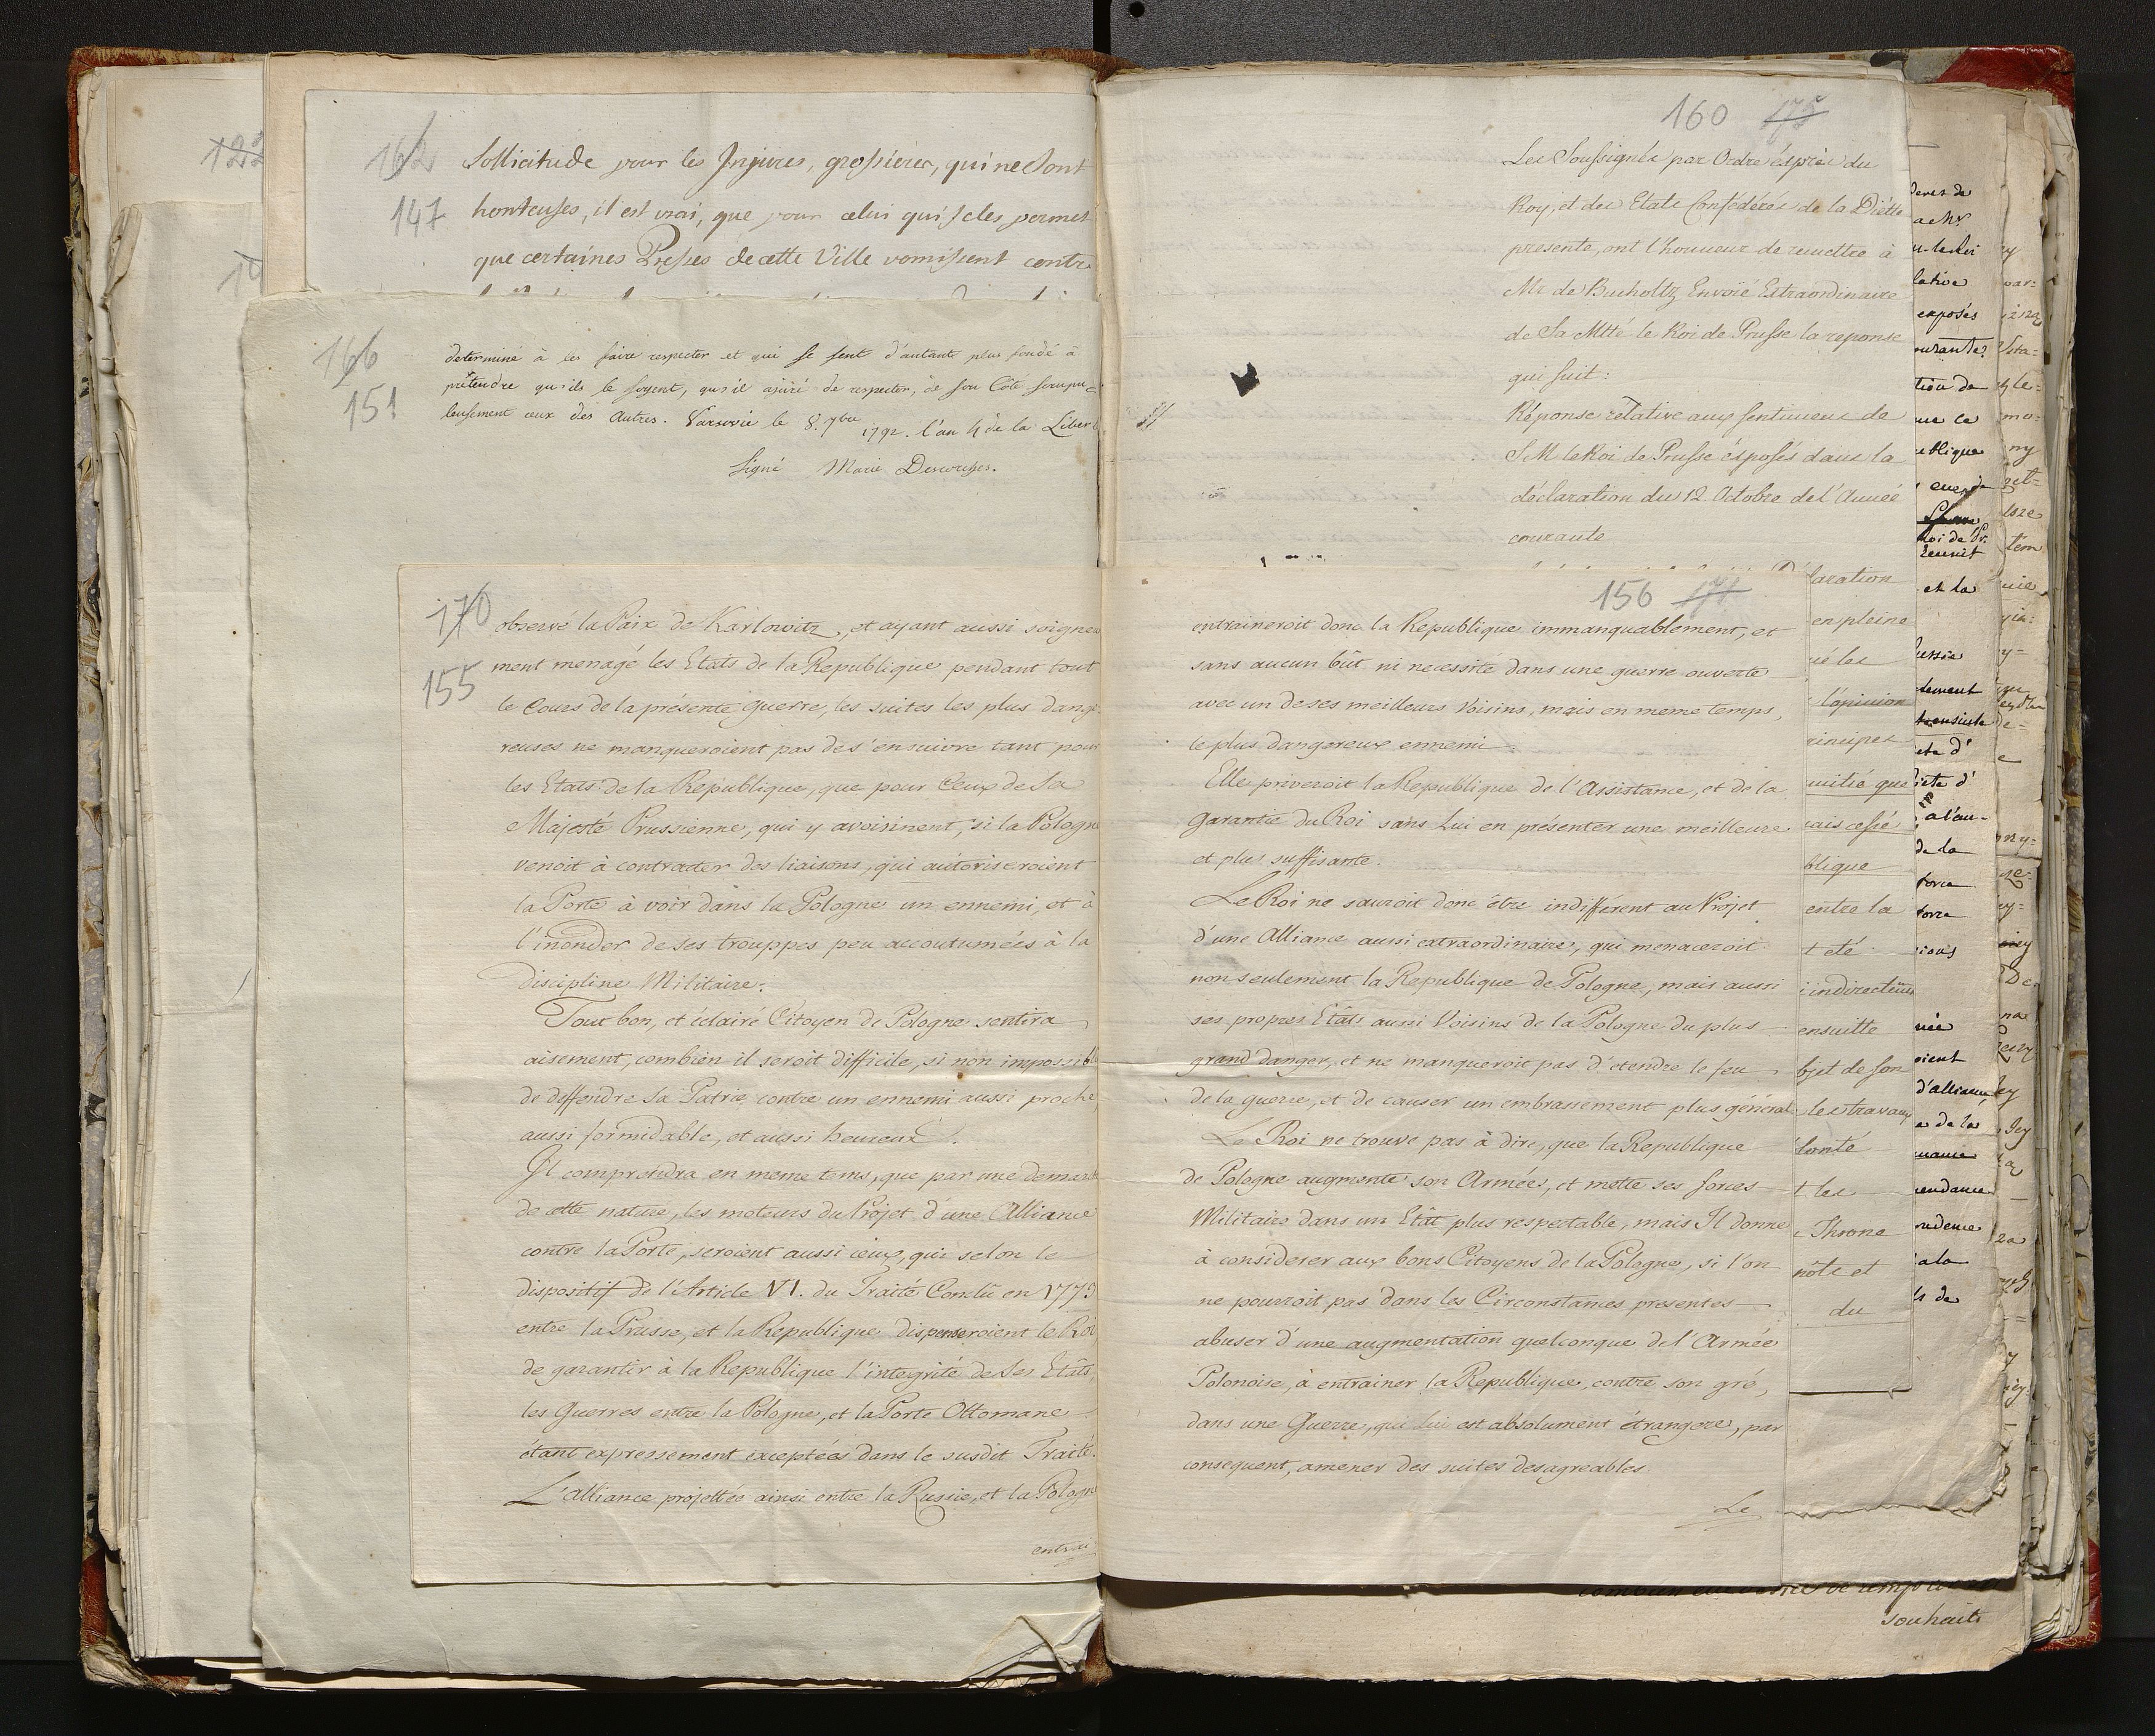 122
162
147
Sollicitude pour les Injures, grossieres, qui ne sont
honteuses, il est vrai, que pour celui qui se les permet
que certaines Presses de cette Ville vomissent contre
166
151
determiné à les faire respecter et qui se sent d'autant plus fondé à
prétendre qu'ils le soyent, qu'il a juré de respecter, de son Côté scrupu=
leusement ceux des Autres. Varsovie le 8. 7bre 1792. l'an 4 de la Libert
Signé Marie Descorches.
170
155
observé la Paix de Karlowitz, et ayant aussi soigneu
ment menagé les Etats de la Republique pendant tout
le Cours de la présente guerre, les suites les plus dange
reuses ne manqueroient pas de s'ensuivre tant pour
les Etats de la Republique, que pour Ceux de Sa
Majesté Prussienne, qui y avoisinent, si la Pologne
venoit à contracter des liaisons, qui autoriseroient
la Porte à voir dans la Pologne un ennemi, et à
l'inonder de ses trouppes peu accoutumées à la
discipline Militaire.
Tout bon, et éclairé Citoyen de Pologne sentira
aisement, combien il seroit difficile, si non impossible
de deffendre sa Patrie contre un ennemi aussi proche,
aussi formidable, et aussi heureux.
Il comprendra en meme tems, que par une demar
de cette nature, les moteurs du Projet d'une Alliance
contre la Porte, seroient aussi ceux, qui selon le
dispositif de l'Article VI. du Traité Conclû en 1773
entre la Prusse, et la Republique dispenseroient le Roi
de garantir à la Republique l'integrité de Ses Etâts,
les Guerres entre la Pologne, et la Porte Ottomane
étant expressement exceptées dans le susdit Traité.
L'alliance projettée ainsi entre la Russie, et la Pologne
entrai
160 175
Les Soussignés par Ordre éxprès du
Roy, et des Etats Confédérés de la Diétte
presente, ont l'honneur de remettre à
Mr de Bucholtz Envoié Extraordinaire
de Sa Mtté le Roi de Prusse la reponse
qui suit:
Réponse rélative aux sentimens de
S M le Roi de Prusse éxposés dans la
déclaration du 12 Octobre de l'Année
courante
156 171
entraineroit donc la Republique immanquablement, et
sans aucun bût ni necessité dans une guerre ouverte
avec un de ses meilleurs Voisins, mais en meme temps,
le plus dangereux ennemi.
Elle priveroit la Republique de l'Assistance, et de la
garantie du Roi sans Lui en présenter une meilleure
et plus suffisante.
Le Roi ne sauroit donc être indifférent au Projet
d'une Alliance aussi extraordinaire, qui menaceroit
non seulement la Republique de Pologne, mais aussi
ses propres Etâts aussi Voisins de la Pologne du plus
grand danger, et ne manqueroit pas d'etendre le feu
de la guerre, et de causer un embrasement plus général
Le Roi ne trouve pas à dire, que la Republique
de Pologne augmente son Armées, et mette ses forces
Militaires dans un Etât plus respectable, mais Il donne
à considerer aux bons Citoyens de la Pologne, si l'on
ne pourroit pas dans les Circonstances presentes
abuser d'une augmentation quelconque de l'Armée
Polonoise, à entrainer la Republique, contre son gré,
dans une Guerre, qui Lui est absolument étrangere, par
consequent, amener des suites desagreables.
Le
laration
en pleine
ué les
l'opinion
rincipes
mitié que
ais cessé
blique
entre la
t eté
i indirecteme
ensuitte
bjet de son
les travaux
lonté
t les
Throne
note et
du
lative
exposés
tion de
ue ce
ublique
Roi de Pr.
et la
tement
iete d'
de la
force
d'alliance
e de la
endance
souhaits